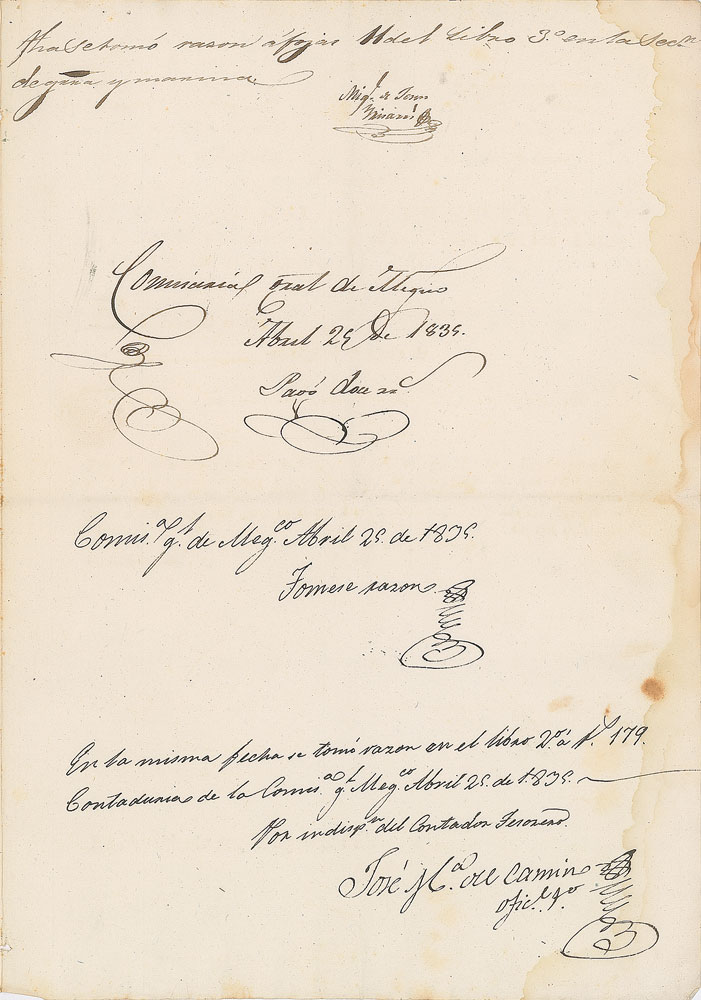 se tomó razon á fojas 11 del Libro 3.º en la Secc.n
de g.rra y marina
Mig.l de
Comisaria gral de Megico
Abril 29 de 1839.
Pagó doce rs
Comis.a g.l de Meg.co Abril 29. de 1839.
Tomese razon
En la misma fecha se tomó razon en el libro 2.º á f.s 179.
Contaduria de la Comis.a g.l Meg.co Abril 29. de 1839.
Por indisp.n del Contador Tesorero.
José M.a del Camino
ofic.l 4.º